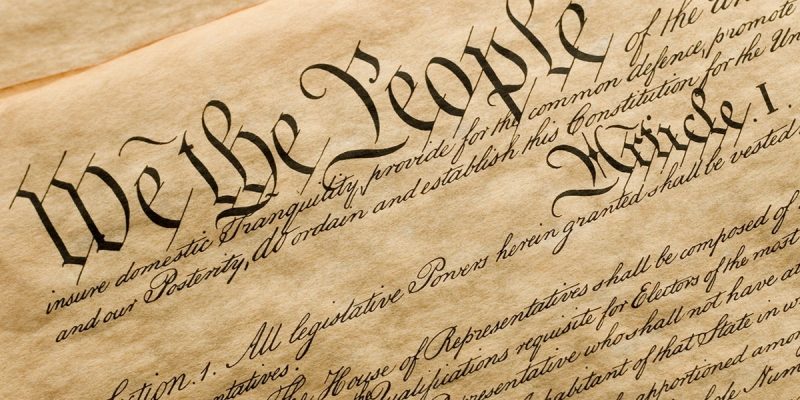 We the People of the Un
insure domestic Tranquility, provide for the common defence, promote
and our Posterity, do ordain and establish this Constitution for the Un
Article. I.
ction. 1. All legislative Powers herein granted shall be vested
ntatives.
The House of Representatives shall be composed of
Qualifications requisite for Electors of the most
presentative who shall not have at
habitant of that State in w
apportioned amon
ole Num